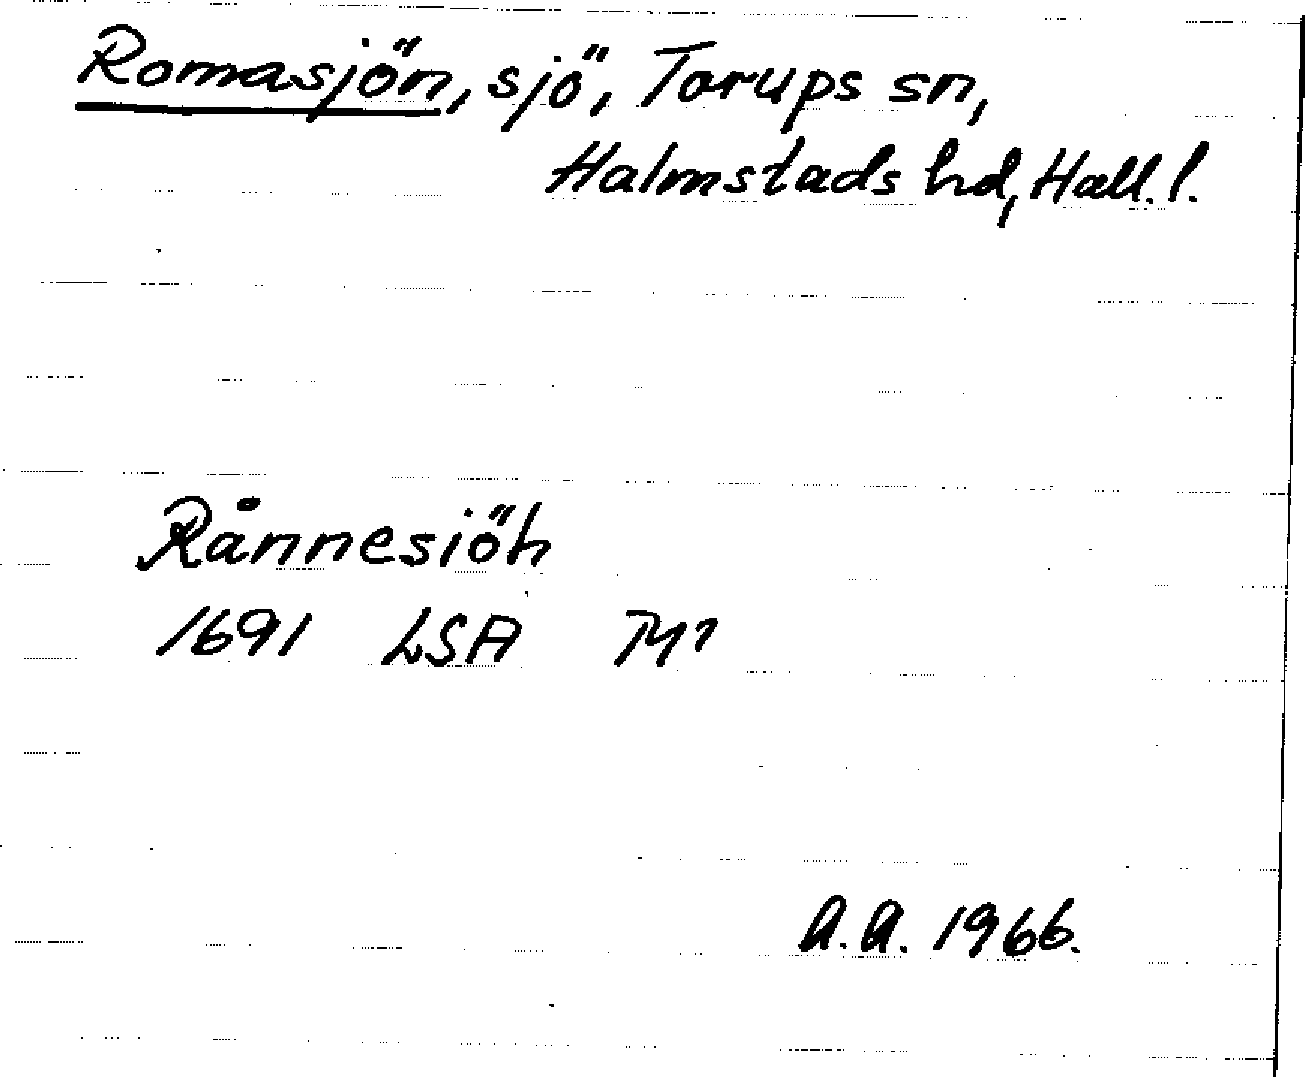 Romasjön, sjö, Torups sn,
Halmstads hd, Hall. l.
Rånnesiöh
1691 LSA
A.A. 1966.